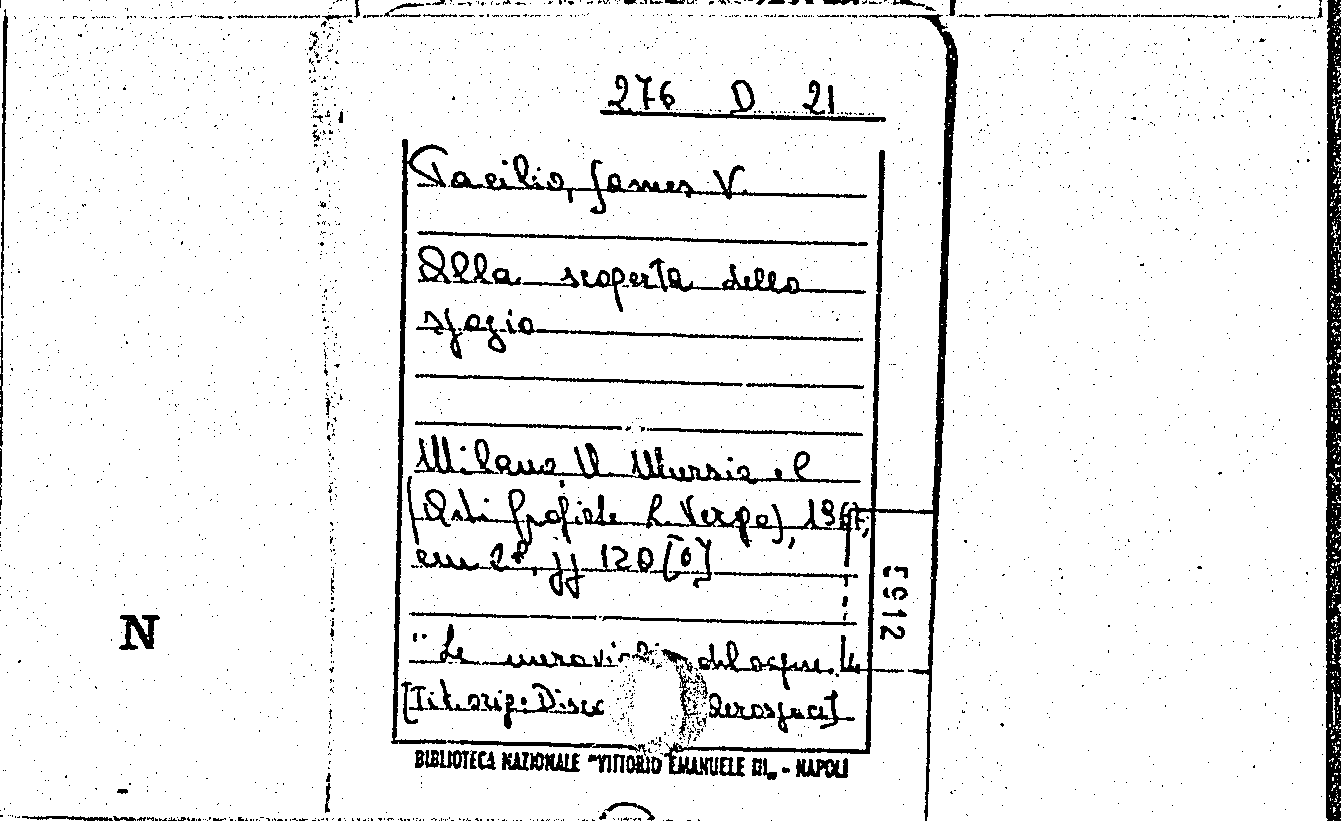 276 D 21
Pacilio, James V.
Alla scoperta dello
spazio
Milano, U. Mursia e C
(Arti Grafiche L. Verga), 1967,
in 2°, pp 120 [6]
"Le meraviglie del sapere. 4
[Tit. orig.: Disco Aerospace]
BIBLIOTECA NAZIONALE "VITTORIO EMANUELE III„ - NAPOLI
N